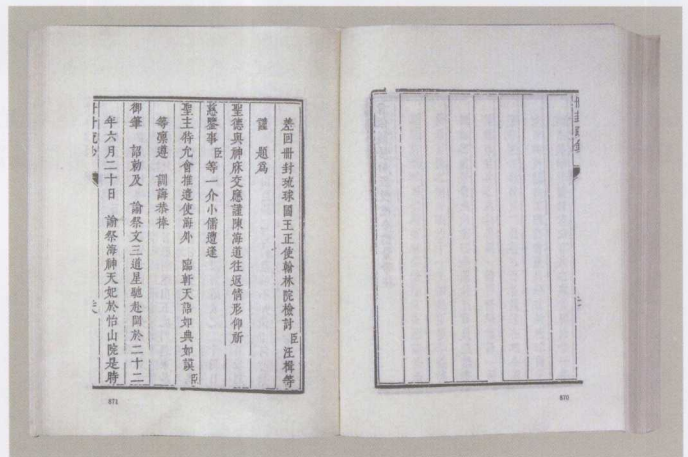 冊封疏鈔
870
差回冊封琉球國王正使翰林院檢討臣汪楫等
謹 題爲
聖德與神庥交應謹陳海道往返情形仰祈
慈鑒事臣等一介小儒遭逢
聖主特允會推遣使海外 臨軒天語如典如謨臣
等凜遵 訓誨恭捧
御筆 詔勅及 諭祭文三道星馳赴閩於二十二
年六月二十日 諭祭海神天妃於怡山院是時
冊封疏鈔
871